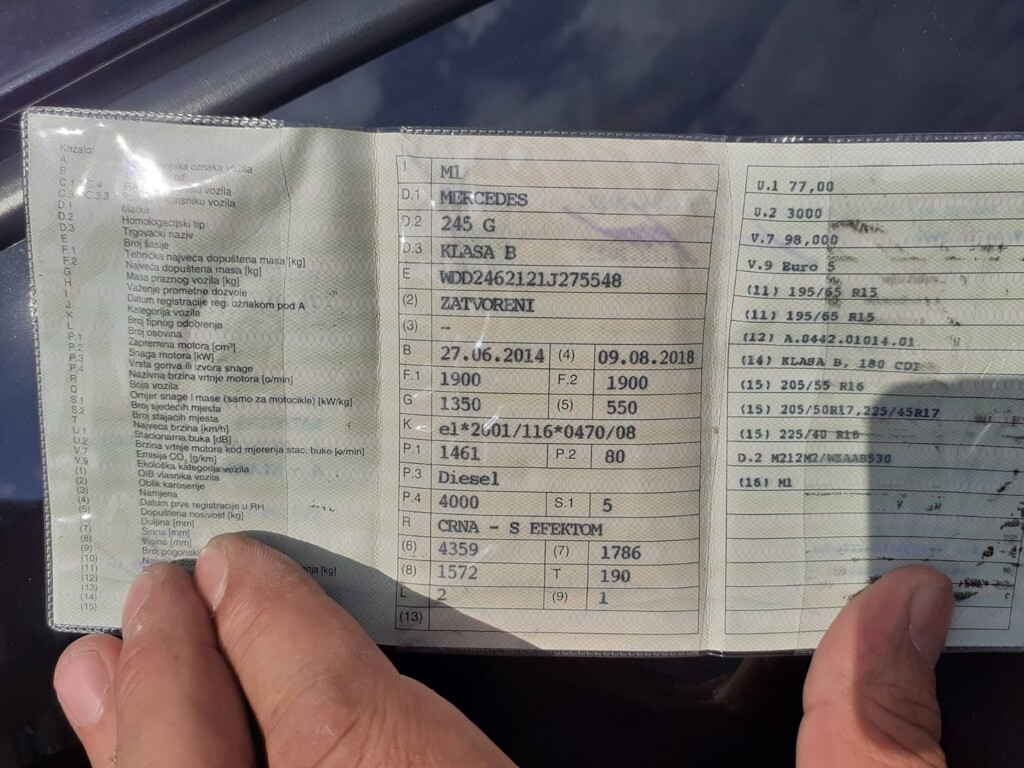 Kazalo:
A
B oznaka vozila
C.1, C.4
C.3, C.3.3 vozila
D.1 Marka
D.2 Homologacijski tip
D.3 Trgovački naziv
E Broj šasije
F.1 Tehnička najveća dopuštena masa [kg]
F.2 Najveća dopuštena masa [kg]
G Masa praznog vozila [kg]
H Važenje prometne dozvole
I Datum registracije reg. oznakom pod A
J Kategorija vozila
K Broj tipnog odobrenja
L Broj osovina
P.1 Zapremina motora [cm³]
P.2 Snaga motora [kW]
P.3 Vrsta goriva ili izvora snage
P.4 Nazivna brzina vrtnje motora [o/min]
R Boja vozila
Q Omjer snage i mase (samo za motocikle) [kW/kg]
S.1 Broj sjedećih mjesta
S.2 Broj stajaćih mjesta
T Najveća brzina [km/h]
U.1 Stacionarna buka [dB]
U.2 Brzina vrtnje motora kod mjerenja stac. buke [o/min]
V.7 Emisija CO₂ [g/km]
V.9 Ekološka kategorija vozila
(1) OIB vlasnika vozila
(2) Oblik karoserije
(3) Namjena
(4) Datum prve registracije u RH
(5) Dopuštena nosivost [kg]
Duljina [mm]
(7) Širina [mm]
(8) Visina [mm]
(9) Broj pogonskih
(10)
(11)
(12)
(13)
(14)
(15)
I M1
D.1 MERCEDES
D.2 245 G
D.3 KLASA B
E WDD2462121J275548
(2) ZATVORENI
(3) –
B 27.06.2014 (4) 09.08.2018
F.1 1900 F.2 1900
G 1350 (5) 550
K e1*2001/116*0470/08
P.1 1461 P.2 80
P.3 Diesel
P.4 4000 S.1 5
R CRNA - S EFEKTOM
(6) 4359 (7) 1786
(8) 1572 T 190
L 2 (9) 1
(13)
U.1 77,00
U.2 3000
V.7 98,000
V.9 Euro 5
(11) 195/65 R15
(11) 195/65 R15
(12) A.0442.01014.01
(14) KLASA B, 180 CDI
(15) 205/55 R16
(15) 205/50R17,225/45R17
(15) 225/40 R18
D.2 M212M2/WZAAB530
(16) M1